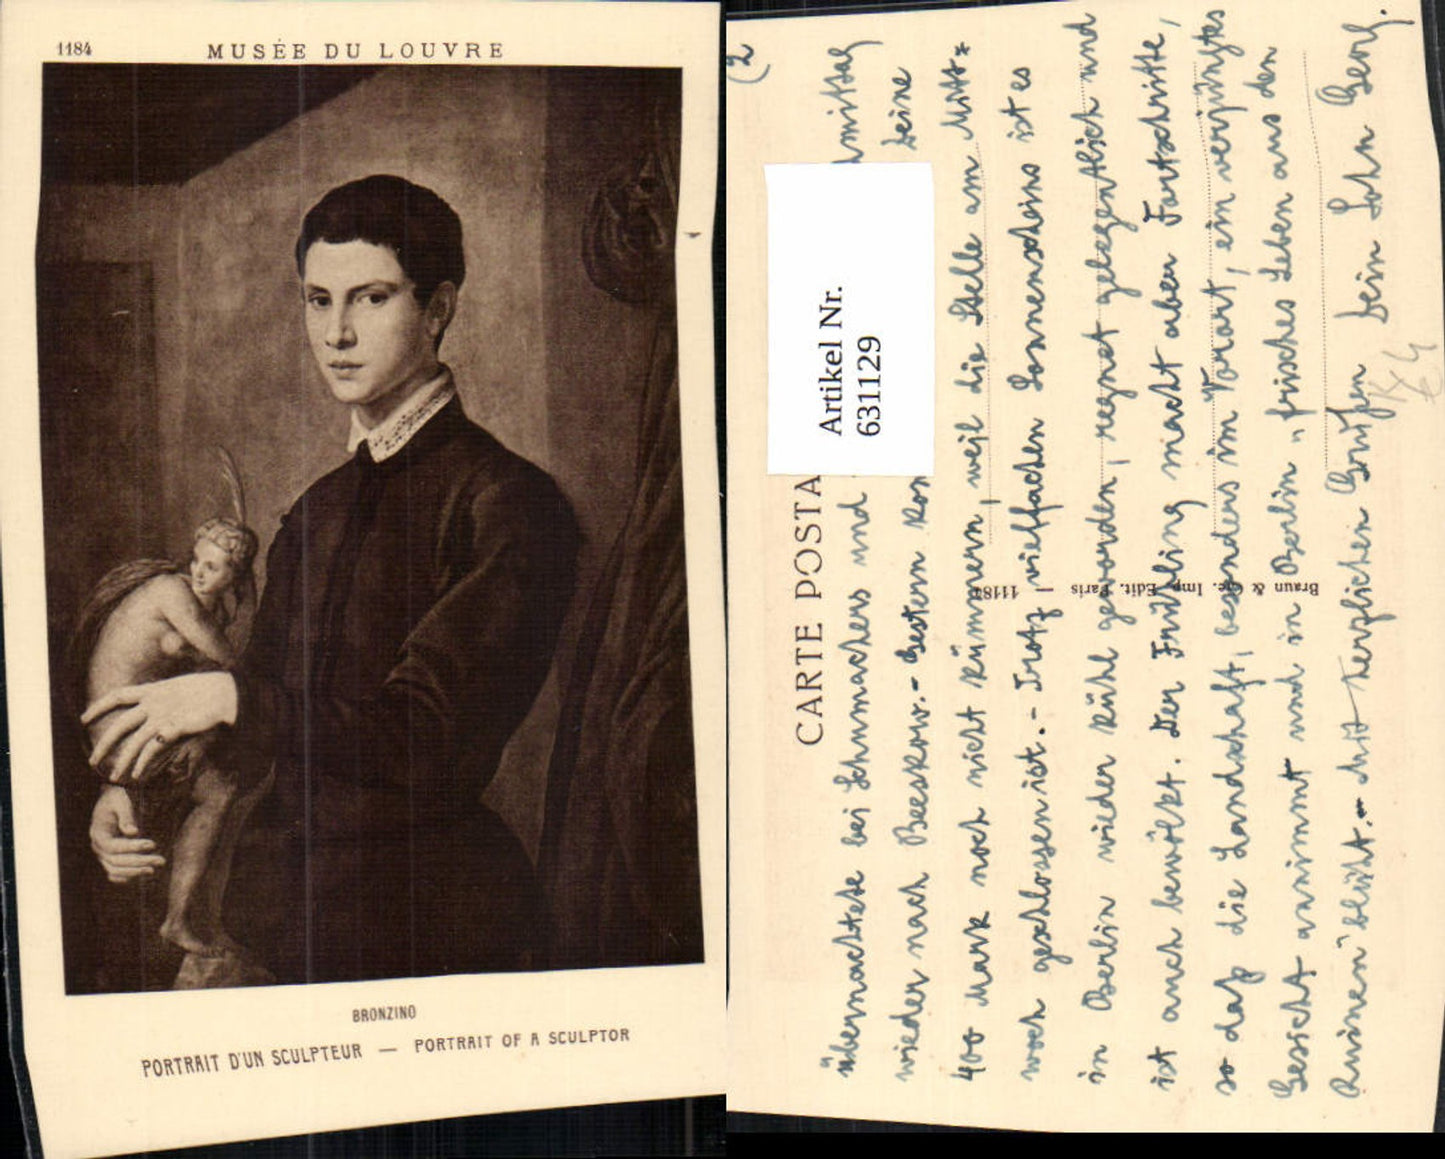 1184
MUSÉE DU LOUVRE
BRONZINO
PORTRAIT D'UN SCULPTEUR — PORTRAIT OF A SCULPTOR
(2
CARTE POSTA
Artikel Nr.
631129
übernachtete bei Schumachers und
wieder nach Beeskow.- Gestern kon Deine
400 Mark noch nicht kümmern, weil die Stelle am Mitt=
woch geschlossen ist. - Trotz vielfachen Sonnenscheins ist es
in Berlin wieder kühl geworden, regnet gelegentlich und
ist auch bewölkt. Der Frühling macht aber Fortschritte,
so daß die Landschaft, besonders im Vorort, ein verjüngtes
Gesicht annimmt und in Berlin „frisches Leben aus den
Ruinen blüht".- Mit herzlichen Grüßen Dein Sohn Georg.
Braun & Cie. Imp. Edit. Paris